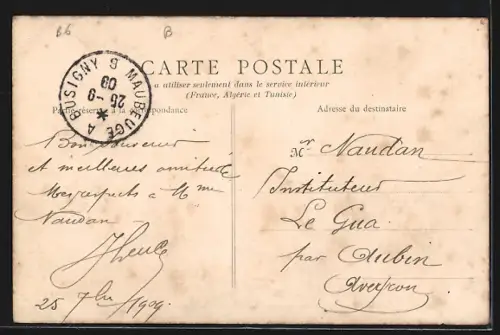 B6
B
CARTE POSTALE
à utiliser seulement dans le service intérieur
(France, Algérie et Tunisie)
Partie réservée à la correspondance
Adresse du destinataire
MAUBEUGE A BUSIGNY B
25 - 9
09
Bon souvenir
et meilleures amitiés
Mes respects à Mme
Naudan
25 7bre 1909
Mr Naudan
Instituteur
Le Gua
par Aubin
Aveyron